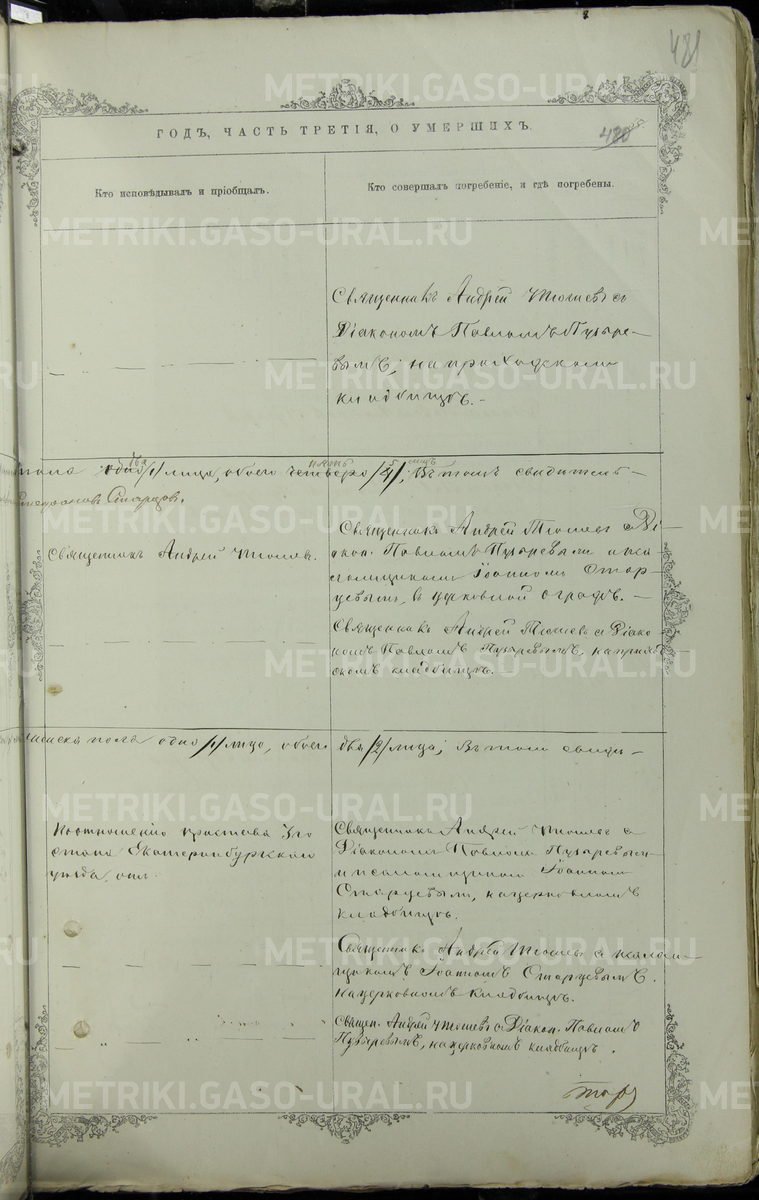 481
ГОДЪ, ЧАСТЬ ТРЕТІЯ, О УМЕРШИХЪ.
480
Кто исповѣдывалъ и пріобщалъ.
Кто совершалъ погребеніе, и гдѣ погребены.
Священникъ Андрей съ
Діакономъ Павломъ Пузыре-
вымъ, на приходскомъ
кладбищѣ. -
пола /1/ лица, обоего четверо /4/; Въ томъ свидѣтель-
Старцов.
Священникъ Андрей
Священникъ Андрей с Ді-
акон. Павломъ Пузыревымъ и пса
ломщикомъ Іоанномъ Стар-
цевымъ, в церковной оградѣ. -
Священникъ Андрей с Діако-
номъ Павломъ Пузыревымъ, на приход
скомъ кладбищѣ.
женска пола одно /1/ лицо, обоего два /2/ лица; Въ томъ свидѣ-
По отношенію пристава 3го
стана Екатеринбургскаго
уѣзда, отъ
Священникъ Андрей с
Діакономъ Павломъ Пузыревымъ
и псаломщикомъ Іоанномъ
Старцевымъ, на церковномъ
кладбищѣ.
Священникъ Андрей с псалом-
щикомъ Іоанномъ Старцевымъ.
на церковномъ кладбищѣ.
Священ. Андрей с Діакон. Павломъ
Пузыревымъ, на церковномъ кладбищѣ.
METRIKI.GASO-URAL.RU